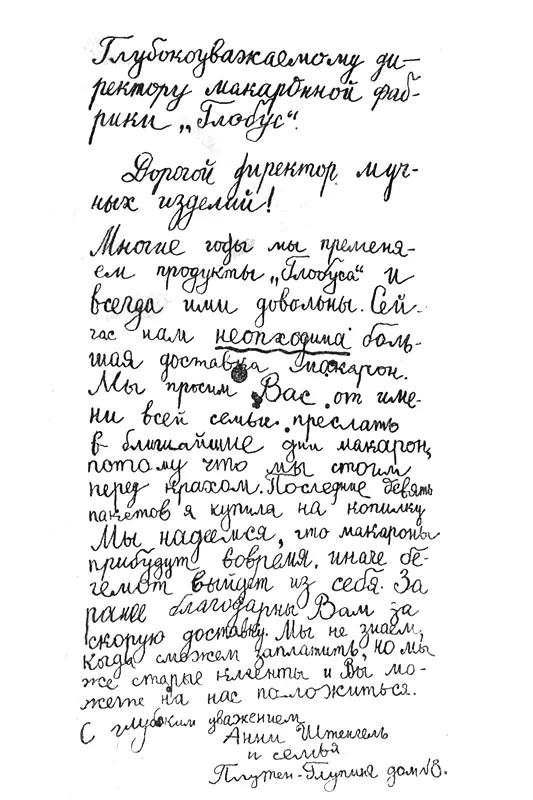 Глубокоуважаемому ди-
ректору макаронной фаб-
рики „Глобус“.
Дорогой директор муч-
ных изделий!
Многие годы мы пременя-
ем продукты „Глобуса“ и
всегда ими довольны. Сей-
час нам неопходима боль-
шая доставка макарон.
Мы просим Вас от име-
ни всей семьи преслать
в ближайшие дни макарон,
потому что мы стоим
перед крахом. Последние девять
пакетов я купила на копилку
Мы надеемся, что макароны
прибудут вовремя, иначе бе-
гемот выйдет из себя. За
ранее благодарны Вам за
скорую доставку. Мы не знаем,
когда сможем заплатить, но мы
же старые клиенты и Вы мо-
жете на нас положиться.
С глубоким уважением
Анни Штенгель
и семья
Плутен-Глупина дом 8.